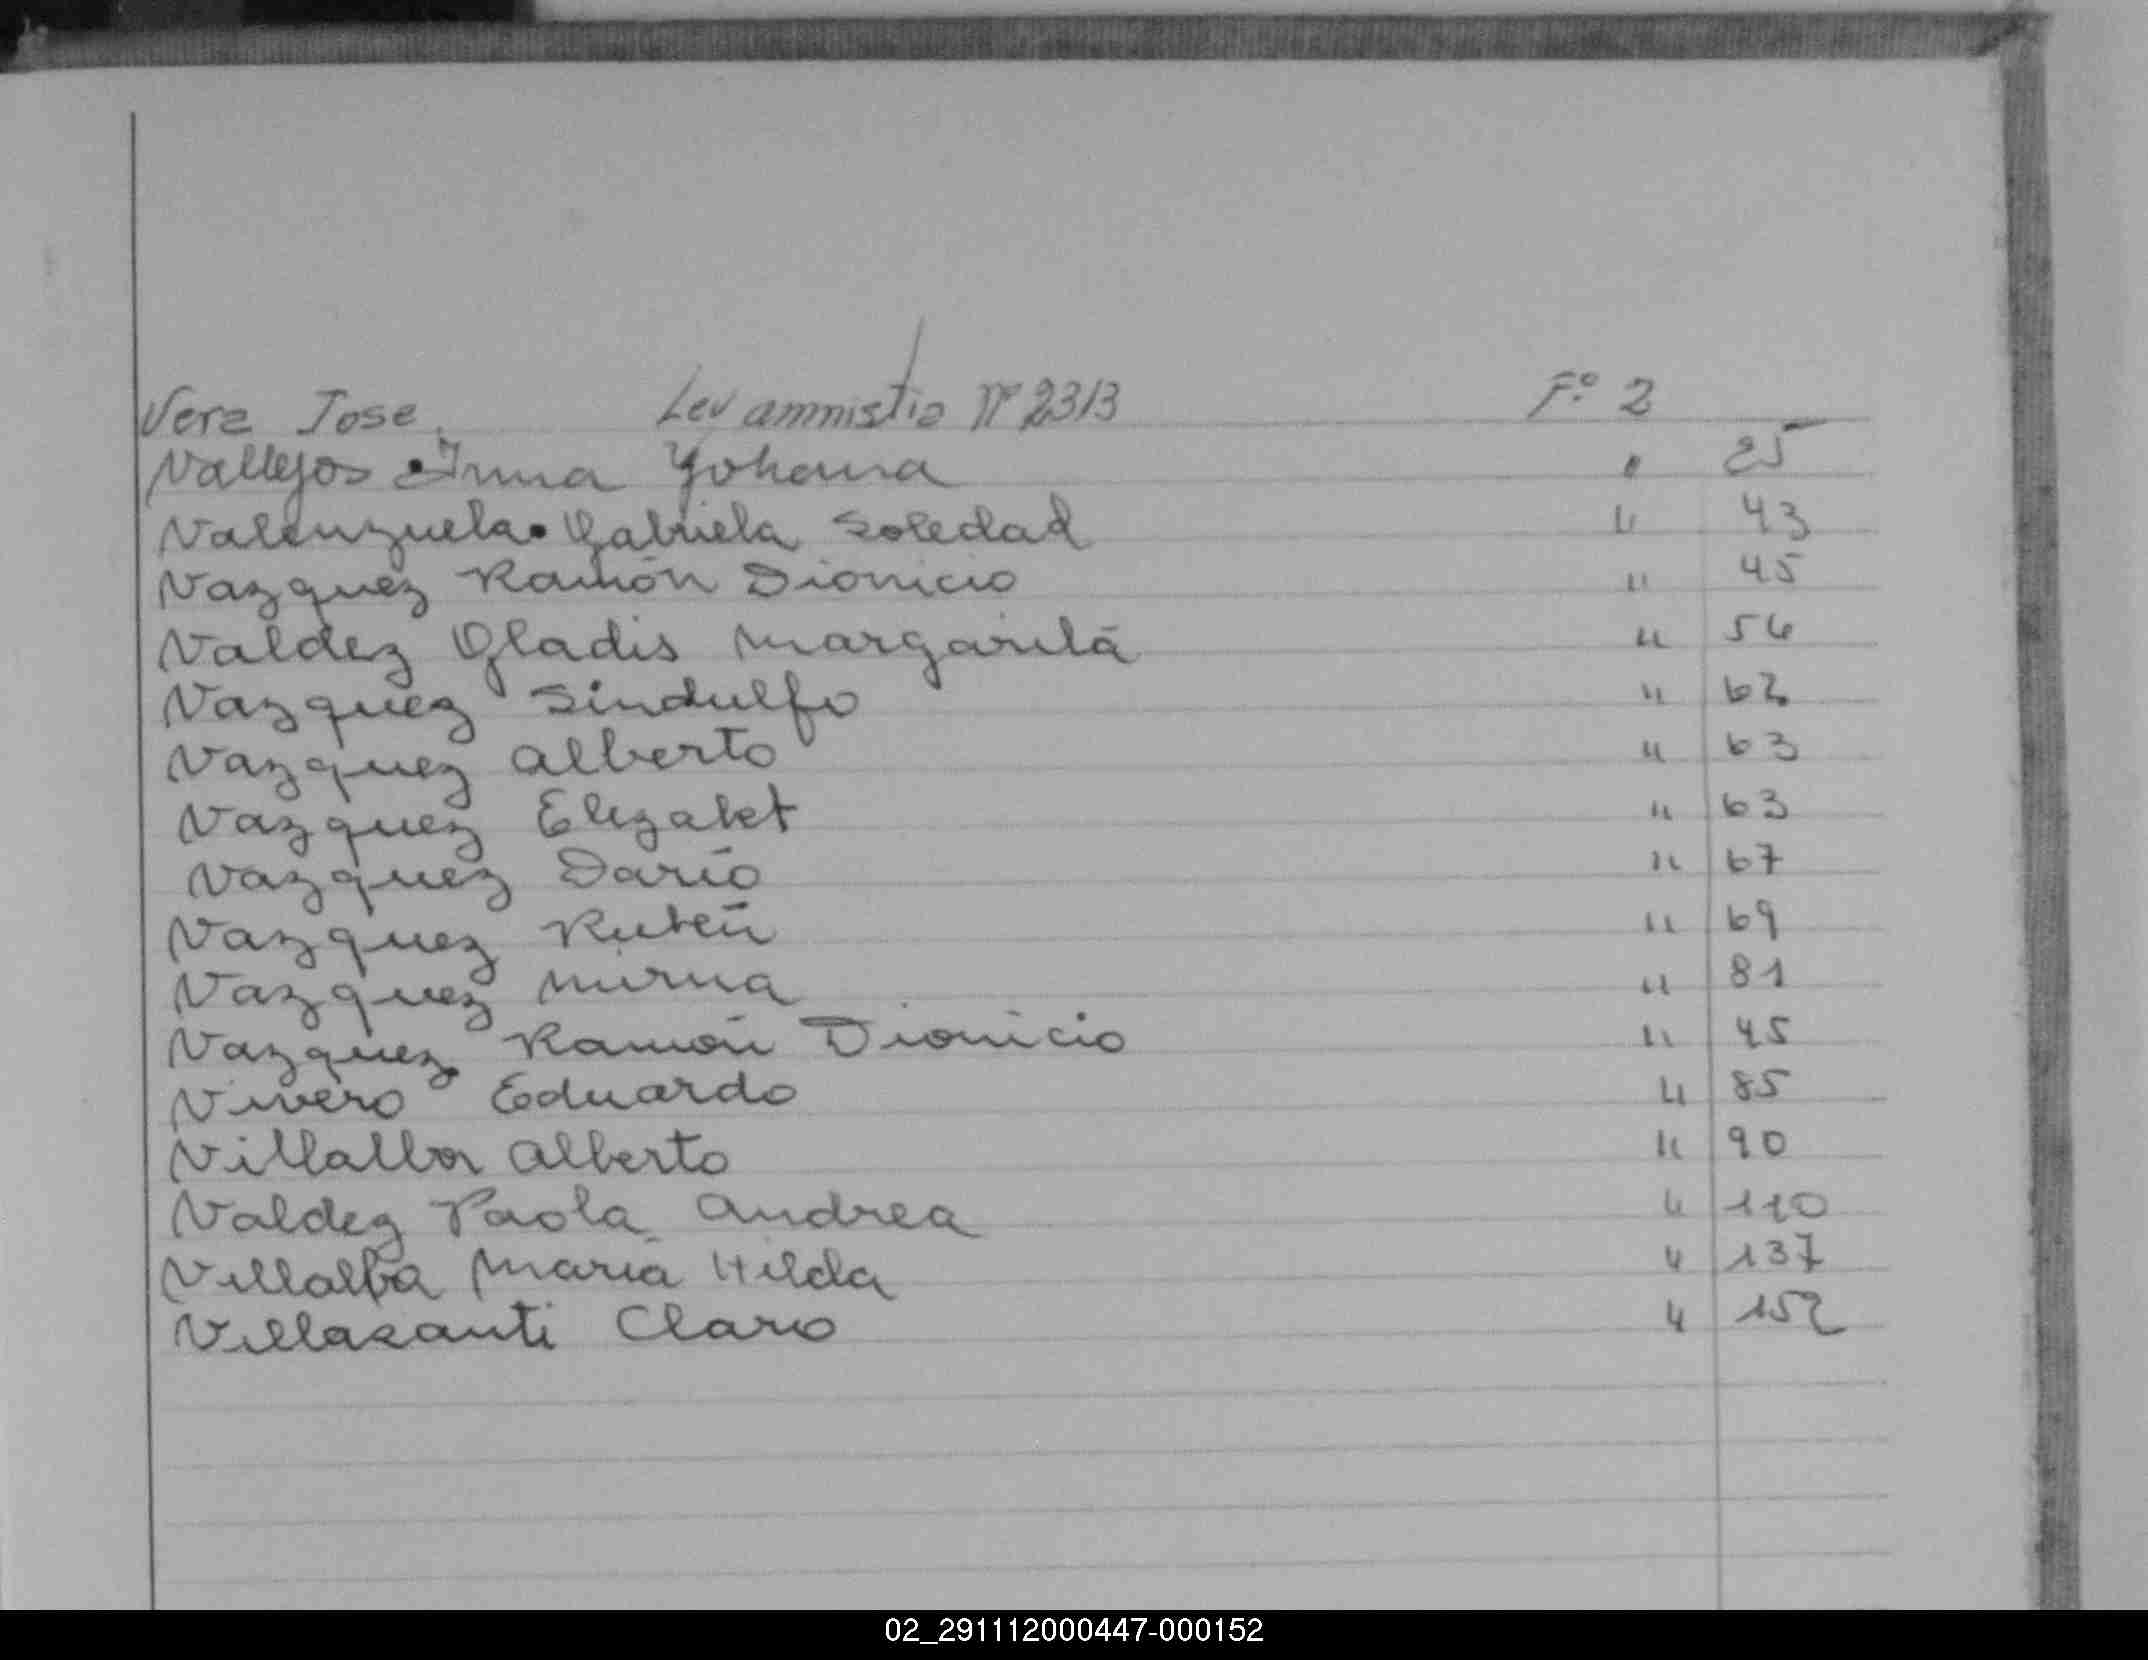 Vera Jose. Ley ammistia Nº 2313 Fº 2
Vallejos Irma Yohana " 25
Valenzuela Gabriela Soledad " 43
Vazquez Ramón Dionicio " 45
Valdez Gladis Margarita " 56
Vazquez Sindulfo " 62
Vazquez Alberto " 63
Vazquez Elizabet " 63
Vazquez Dario " 67
Vazquez Rubén " 69
Vazquez Mirna " 81
Vazquez Ramón Dionicio " 45
Vivero Eduardo " 85
Villalba Alberto " 90
Valdez Paola Andrea " 110
Villalba Maria Hilda " 137
Villasanti Claro " 152
02_291112000447-000152